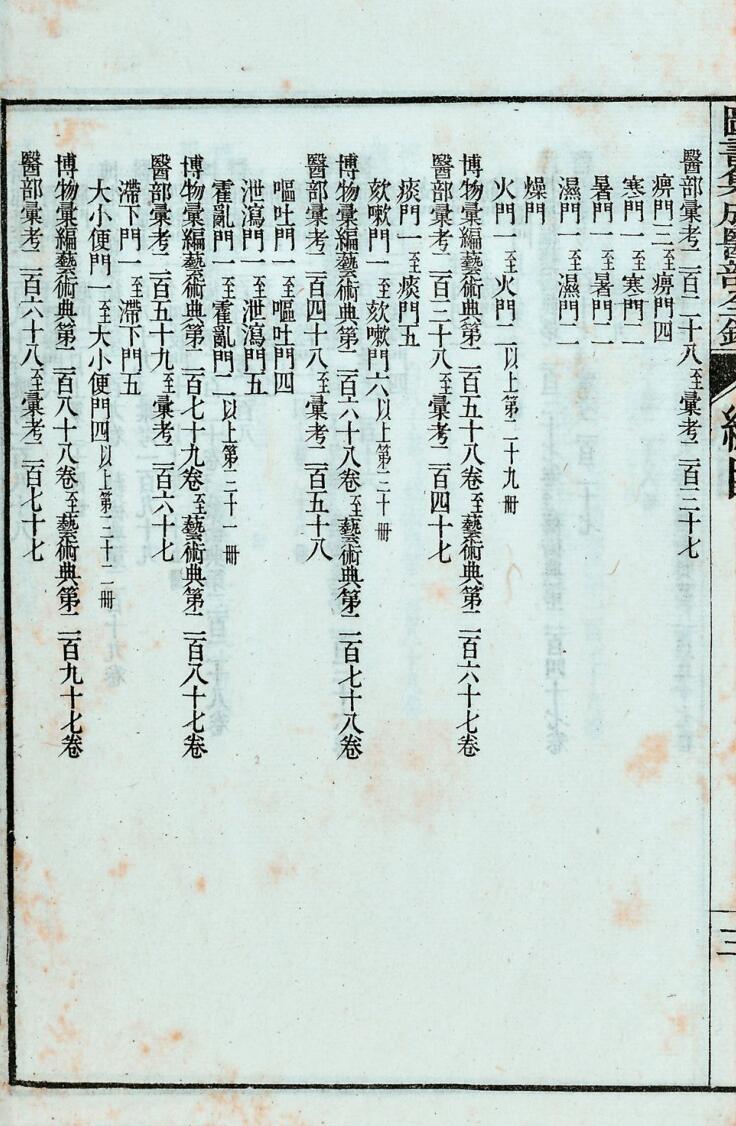 圖書集成醫部全錄
總目
三
醫部彙考二百二十八至彙考二百三十七
痹門三至痹門四
寒門一至寒門二
暑門一至暑門二
濕門一至濕門二
燥門
火門一至火門二以上第二十九冊
博物彙編藝術典第二百五十八卷至藝術典第二百六十七卷
醫部彙考二百三十八至彙考二百四十七
痰門一至痰門五
欬嗽門一至欬嗽門六以上第三十冊
博物彙編藝術典第二百六十八卷至藝術典第二百七十八卷
醫部彙考二百四十八至彙考二百五十八
嘔吐門一至嘔吐門四
泄瀉門一至泄瀉門五
霍亂門一至霍亂門二以上第三十一冊
博物彙編藝術典第二百七十九卷至藝術典第二百八十七卷
醫部彙考二百五十九至彙考二百六十七
滯下門一至滯下門五
大小便門一至大小便門四以上第三十二冊
博物彙編藝術典第二百八十八卷至藝術典第二百九十七卷
醫部彙考二百六十八至彙考二百七十七